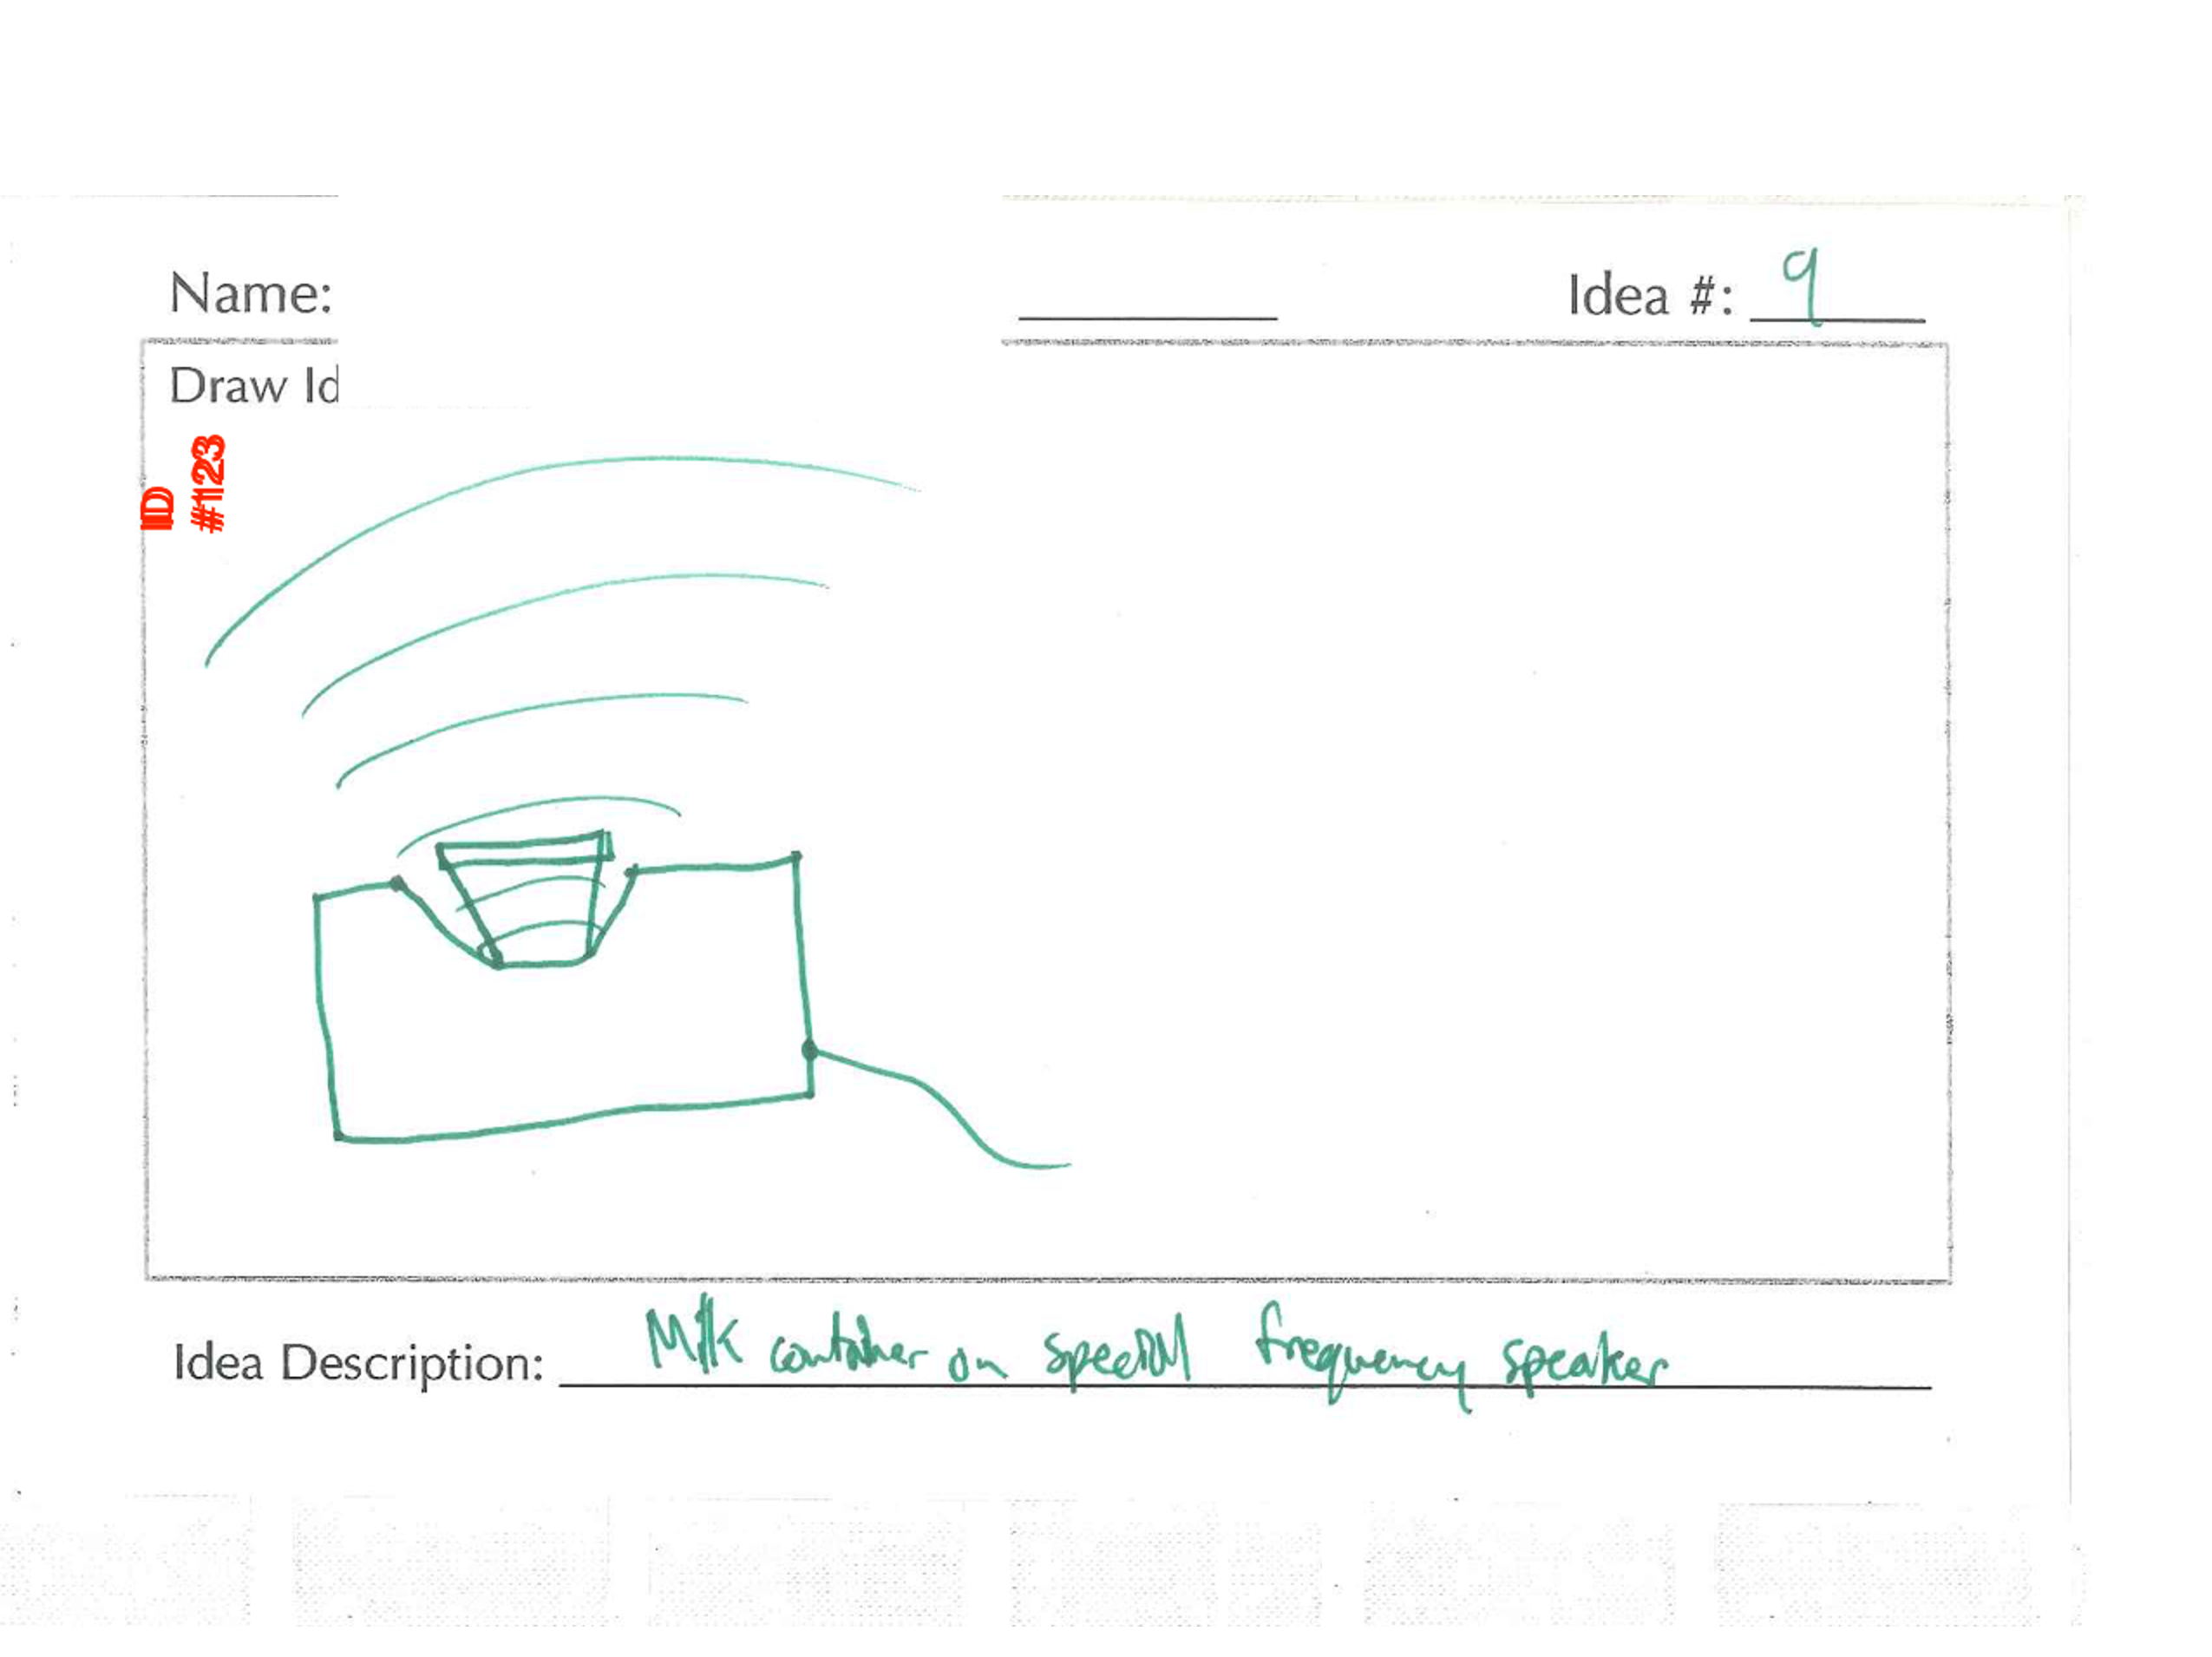 Name: Idea #: 9
Draw Id
ID
#1123
Idea Description: Milk container on special frequency speaker